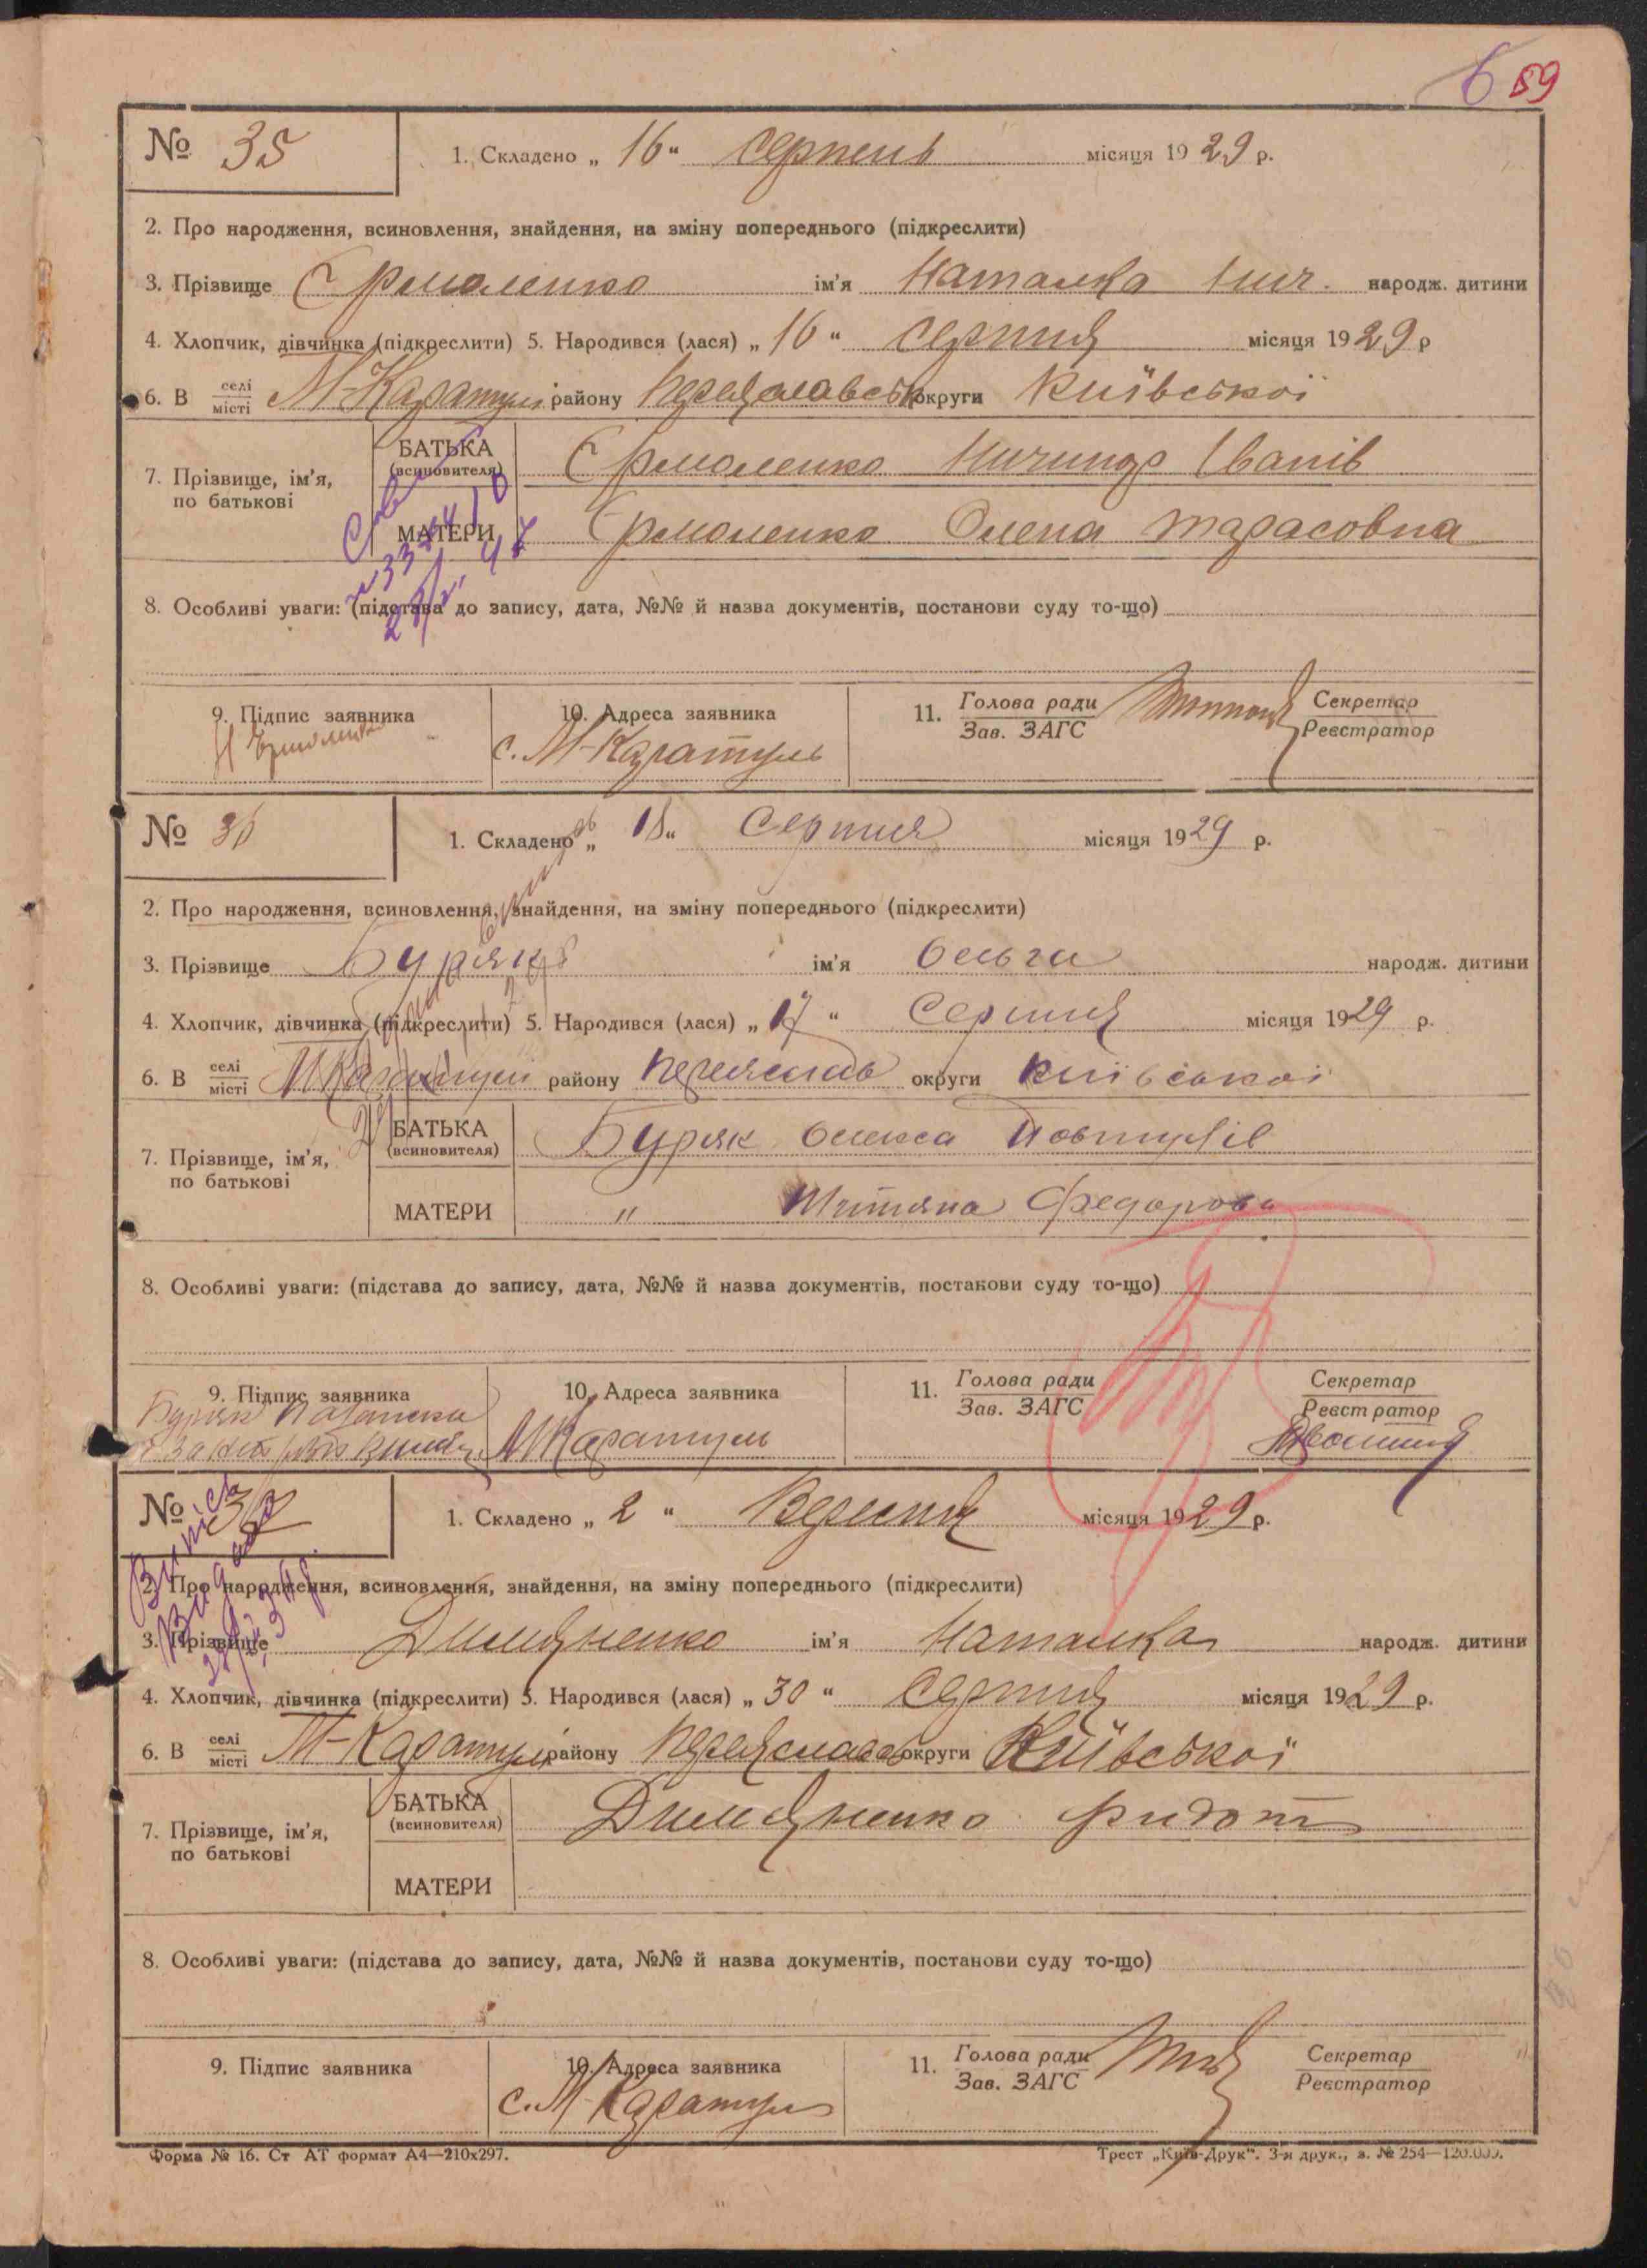 6 59
№ 35 1. Складено „ 16 “ серпень місяця 1929 р.
2. Про народження, всиновлення, знайдення, на зміну попереднього (підкреслити)
3. Прізвище Єрмоленко ім'я Наталка Нич. народж. дитини
4. Хлопчик, дівчинка (підкреслити) 5. Народився (лася) „ 16 “ серпня місяця 1929 р
6. В селі/місті М-Каратулі району Переяславськ округи Київської
7. Прізвище, ім'я, по батькові
БАТЬКА (всиновителя) Єрмоленко Ничипор Іванів
МАТЕРИ Єрмоленко Олена Тарасовна
8. Особливі уваги: (підстава до запису, дата, №№ й назва документів, постанови суду то-що)
9. Підпис заявника 10. Адреса заявника 11. Голова ради/Зав. ЗАГС Секретар/Реєстратор
Н Єрмоленко с. М-Каратуль
№ 36 1. Складено „ 18 “ Серпня місяця 1929 р.
2. Про народження, всиновлення, знайдення, на зміну попереднього (підкреслити)
3. Прізвище Буряк ім'я Ольга народж. дитини
4. Хлопчик, дівчинка (підкреслити) 5. Народився (лася) „ 17 “ Серпня місяця 1929 р.
6. В селі/місті МКаратулі району Переяслав округи Київської
7. Прізвище, ім'я, по батькові
БАТЬКА (всиновителя) Буряк Олекса
МАТЕРИ " Федорова
8. Особливі уваги: (підстава до запису, дата, №№ й назва документів, постанови суду то-що)
9. Підпис заявника 10. Адреса заявника 11. Голова ради/Зав. ЗАГС Секретар/Реєстратор
Буряк МКаратуль
№ 37 1. Складено „ 2 “ Вересня місяця 1929 р.
2. Про народження, всиновлення, знайдення, на зміну попереднього (підкреслити)
3. Прізвище Димяненко ім'я Наталка народж. дитини
4. Хлопчик, дівчинка (підкреслити) 5. Народився (лася) „ 30 “ серпня місяця 1929 р.
6. В селі/місті М-Каратулі району Переяславсь округи Київської
7. Прізвище, ім'я, по батькові
БАТЬКА (всиновителя) Димяненко
МАТЕРИ
8. Особливі уваги: (підстава до запису, дата, №№ й назва документів, постанови суду то-що)
9. Підпис заявника 10. Адреса заявника 11. Голова ради/Зав. ЗАГС Секретар/Реєстратор
с. М-Каратуль
Форма № 16. Ст АТ формат А4—210х297. Трест „Київ-Друк“. 3-я друк., з. № 254—120.000.